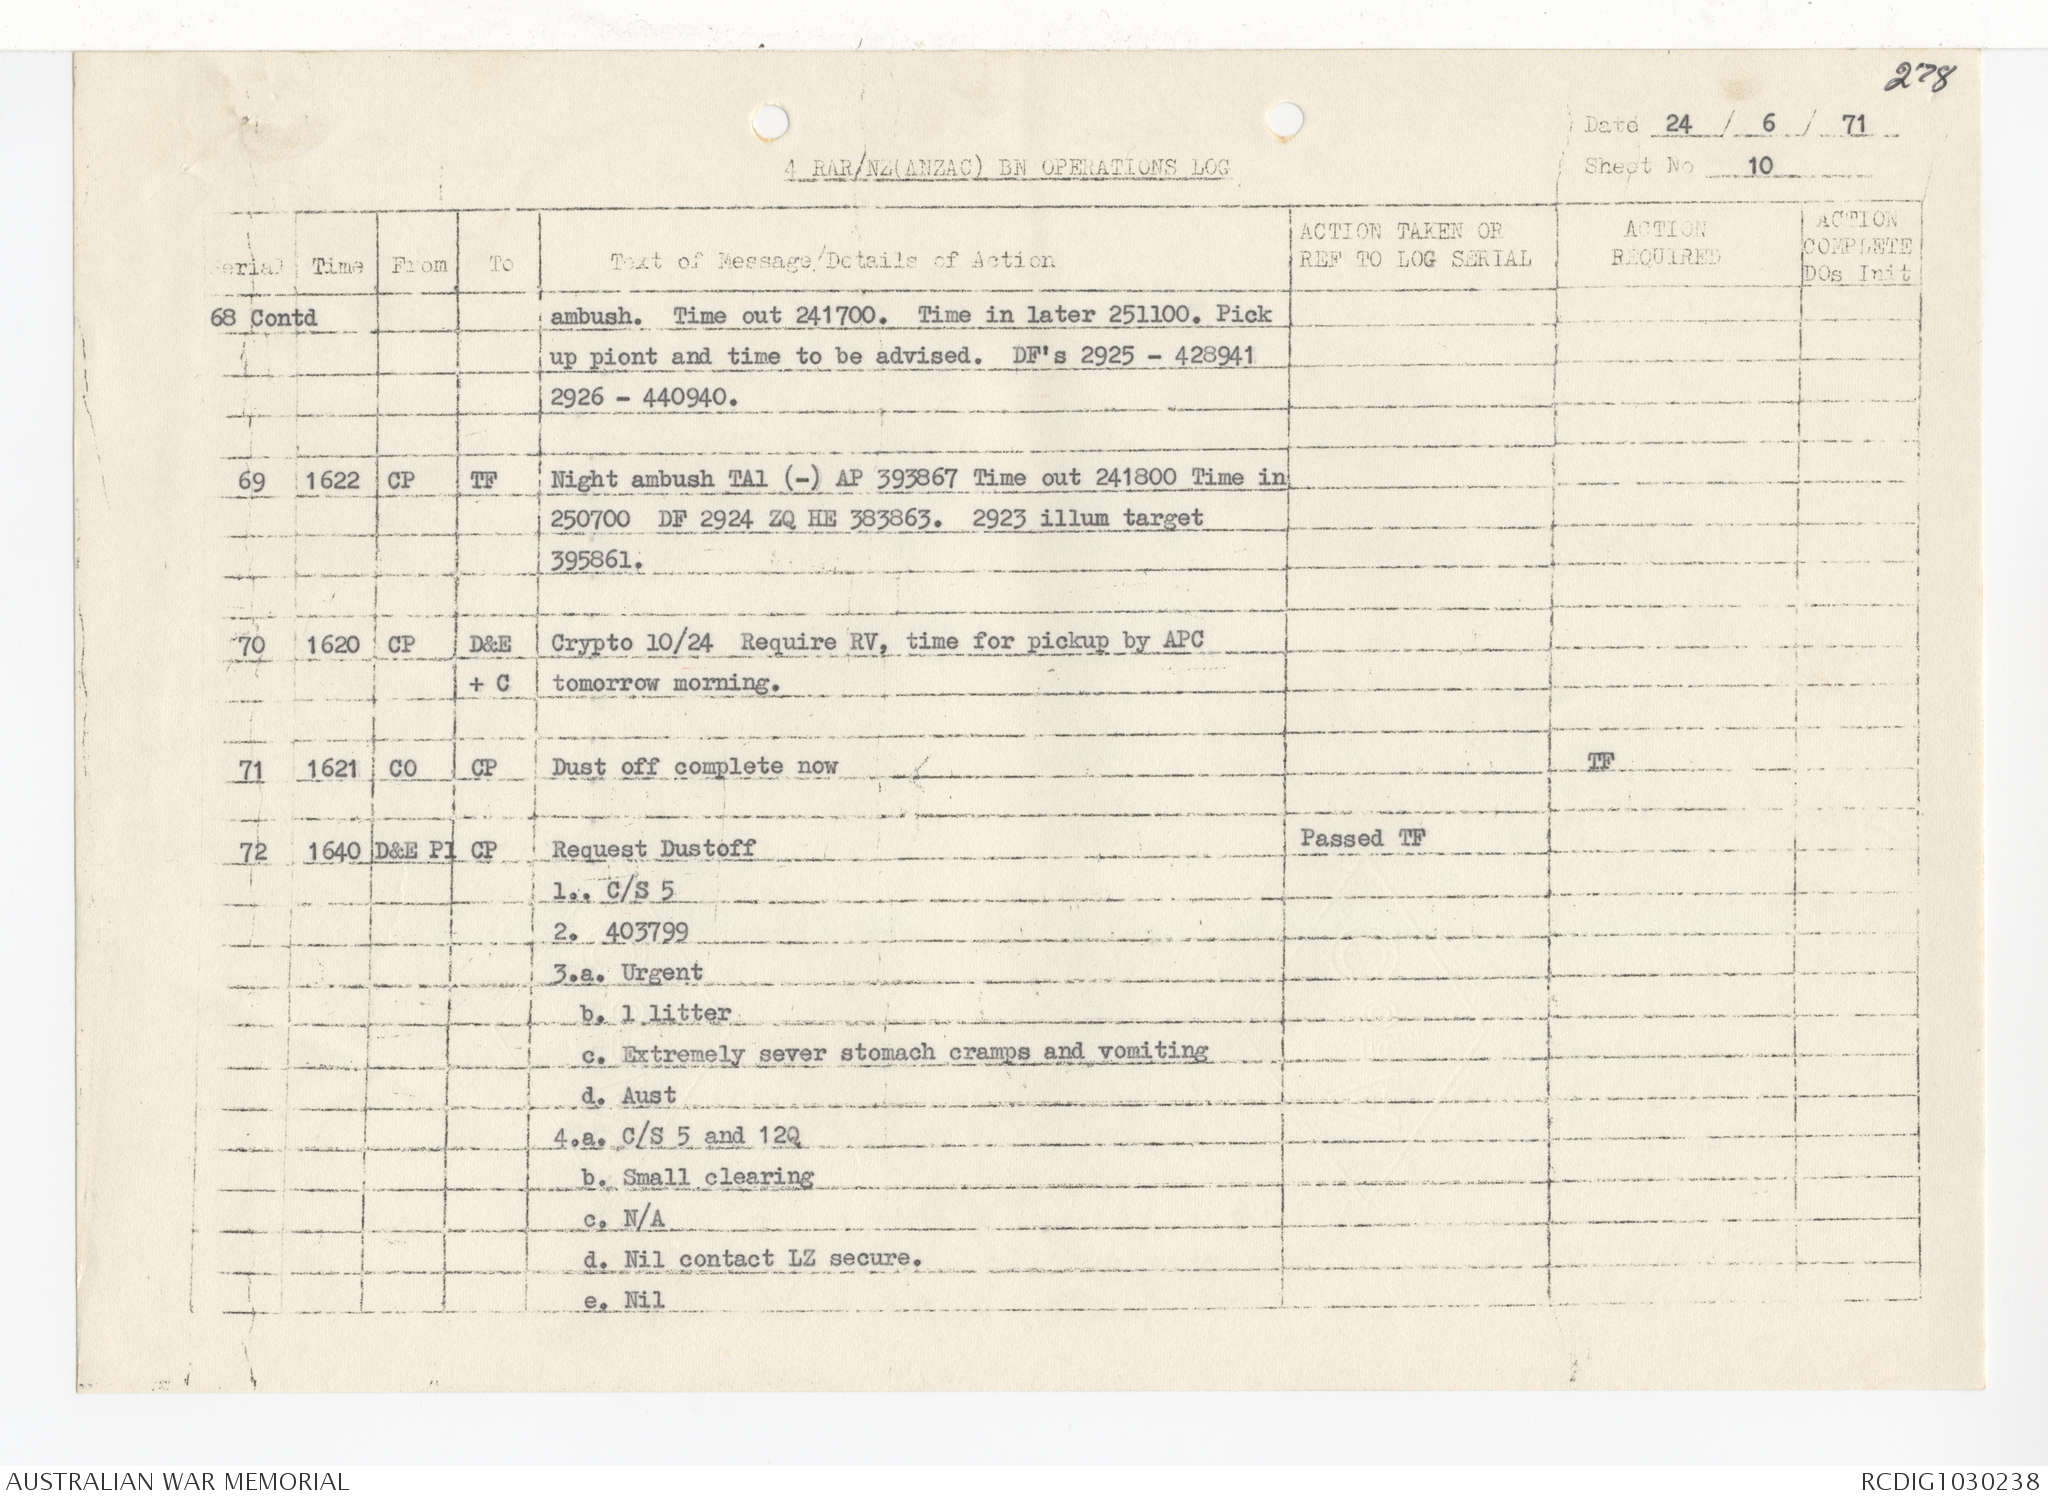 278
Date 24 / 6 / 71
Sheet No 10
4 RAR/NZ(ANZAC) BN OPERATIONS LOG
Serial Time From To Text of Message/Details of Action ACTION TAKEN OR REF TO LOG SERIAL ACTION REQUIRED ACTION COMPLETE DOs Init
68 Contd ambush. Time out 241700. Time in later 251100. Pick
up piont and time to be advised. DF's 2925 - 428941
2926 - 440940.
69 1622 CP TF Night ambush TA1 (-) AP 393867 Time out 241800 Time in
250700 DF 2924 ZQ HE 383863. 2923 illum target
395861.
70 1620 CP D&E Crypto 10/24 Require RV, time for pickup by APC
+ C tomorrow morning.
71 1621 CO CP Dust off complete now TF
72 1640 D&E Pl CP Request Dustoff Passed TF
1.. C/S 5
2. 403799
3.a. Urgent
b. 1 litter
c. Extremely sever stomach cramps and vomiting
d. Aust
4.a. C/S 5 and 12Q
b. Small clearing
c. N/A
d. Nil contact LZ secure.
e. Nil
AUSTRALIAN WAR MEMORIAL RCDIG1030238